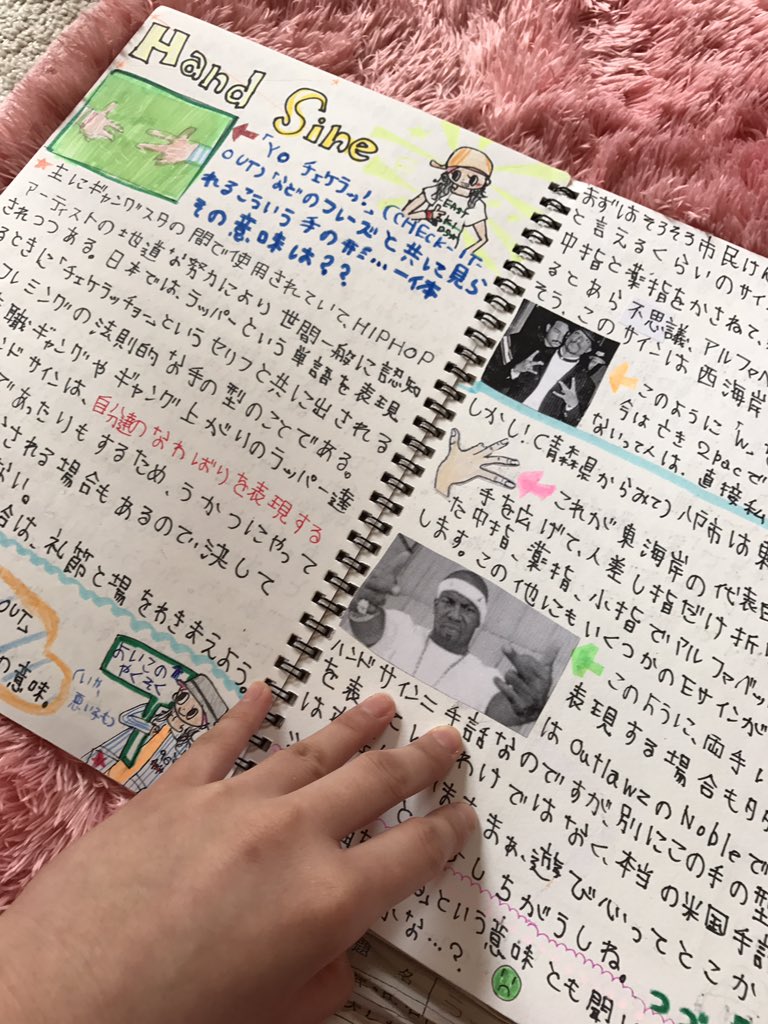 Hand Sine
「YO チェケラッ!」(CHECK IT
OUT)などのフレーズと共に見ら
れるこういう手の形…一体
その意味は??
★主にギャングスタの間で使用されていて、HIPHOP
アーティストの地道な努力により世間一般に認知
されつつある。日本では、ラッパーという単語を表現
るときに「チェケラッチョー」というセリフと共に出される
フレミングの法則的な手の型のことである。
職ギャングやギャング上がりのラッパー達
ンドサインは、自分達のなわばりを表現する
であったりもするため、うかつにやって
される場合もあるので、決して
ない。
合は、礼節と場をわきまえよう。
OUT」
の意味。
よいこの
やくそく
EAST
まずはそろそろ市民けん
と言えるくらいのサイ
中指と薬指をかさねて、
るとあら不思議、アルファベ
そう、このサインは西海岸
このように「W」を
今はとき2pacで
ないって人は、直接私
しかし!(青森県からみて)八戸市は東
これが東海岸の代表
手を広げて、人差し指だけ折
た中指、薬指、小指でアルファベッ
します。この他にもいくつかのEサインが
このように、両手
表現する場合も
はOutlawzのNobleで
ハンドサイン=手話なのですが、別にこの手の型
を表
わけではなく、本当の米国手話
まぁ、遊び心ってとこか
ちがうしね。
という意味とも聞
な…?